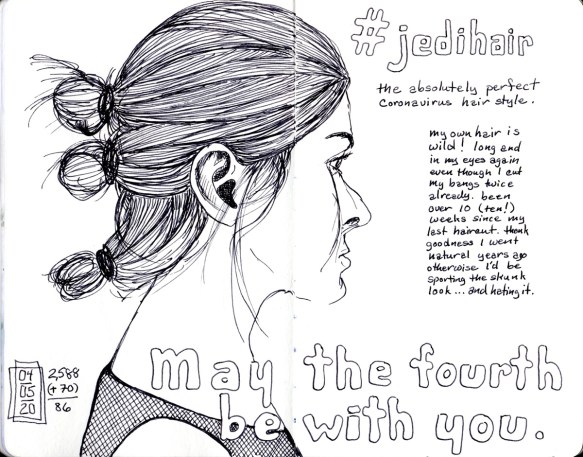 #jedihair
the absolutely perfect
Coronavirus hair style.
my own hair is
wild! long and
in my eyes again
even though I cut
my bangs twice
already. been
over 10 (ten!)
weeks since my
last haircut. thank
goodness I went
natural years ago
otherwise I'd be
sporting the skunk
look... and hating it.
may the fourth
be with you.
04
05
20
2,588
(+70)
86